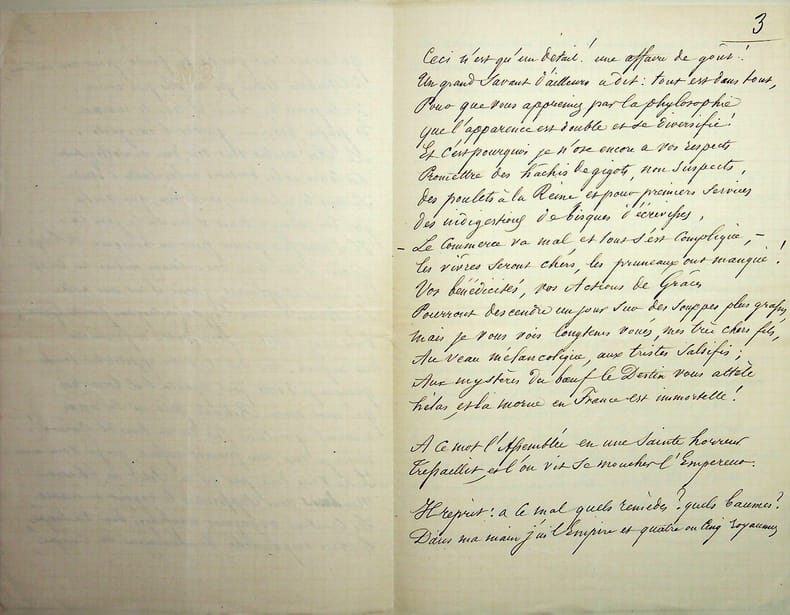 3
Ceci n'est qu'un détail! une affaire de goût!
Un grand Savant d'ailleurs a dit: tout est dans tout,
Pour que vous appreniez par la phylosophie
que l'apparence est double et se diversifie!
Et c'est pourquoi je n'ose encor a vos respects
Promettre des hachis de gigots, non suspects,
des poulets à la Reine et pour premiers services
des indigestions de bisques d'écrevisses,
– Le Commerce va mal et tout s'est compliqué, –
les vivres seront chers, les pruneaux ont manqué!
Vos bénédicités, vos Actions de Grâces
Pourront descendre un jour sur des souppes plus grasses
mais je vous vois longtems voués, mes très chers fils,
Au veau mélancolique, aux tristes Salsifis;
Aux mystères du bœuf le Destin vous attèle
hélas, et la morue en France est immortelle!
A ce mot l'Assemblée en une Sainte horreur
Tressaillit, et l'on vit se moucher l'Empereur.
Il reprit: a ce mal quels remèdes? quels baumes?
Dans ma main j'ai l'Empire et quatre ou cinq royaumes